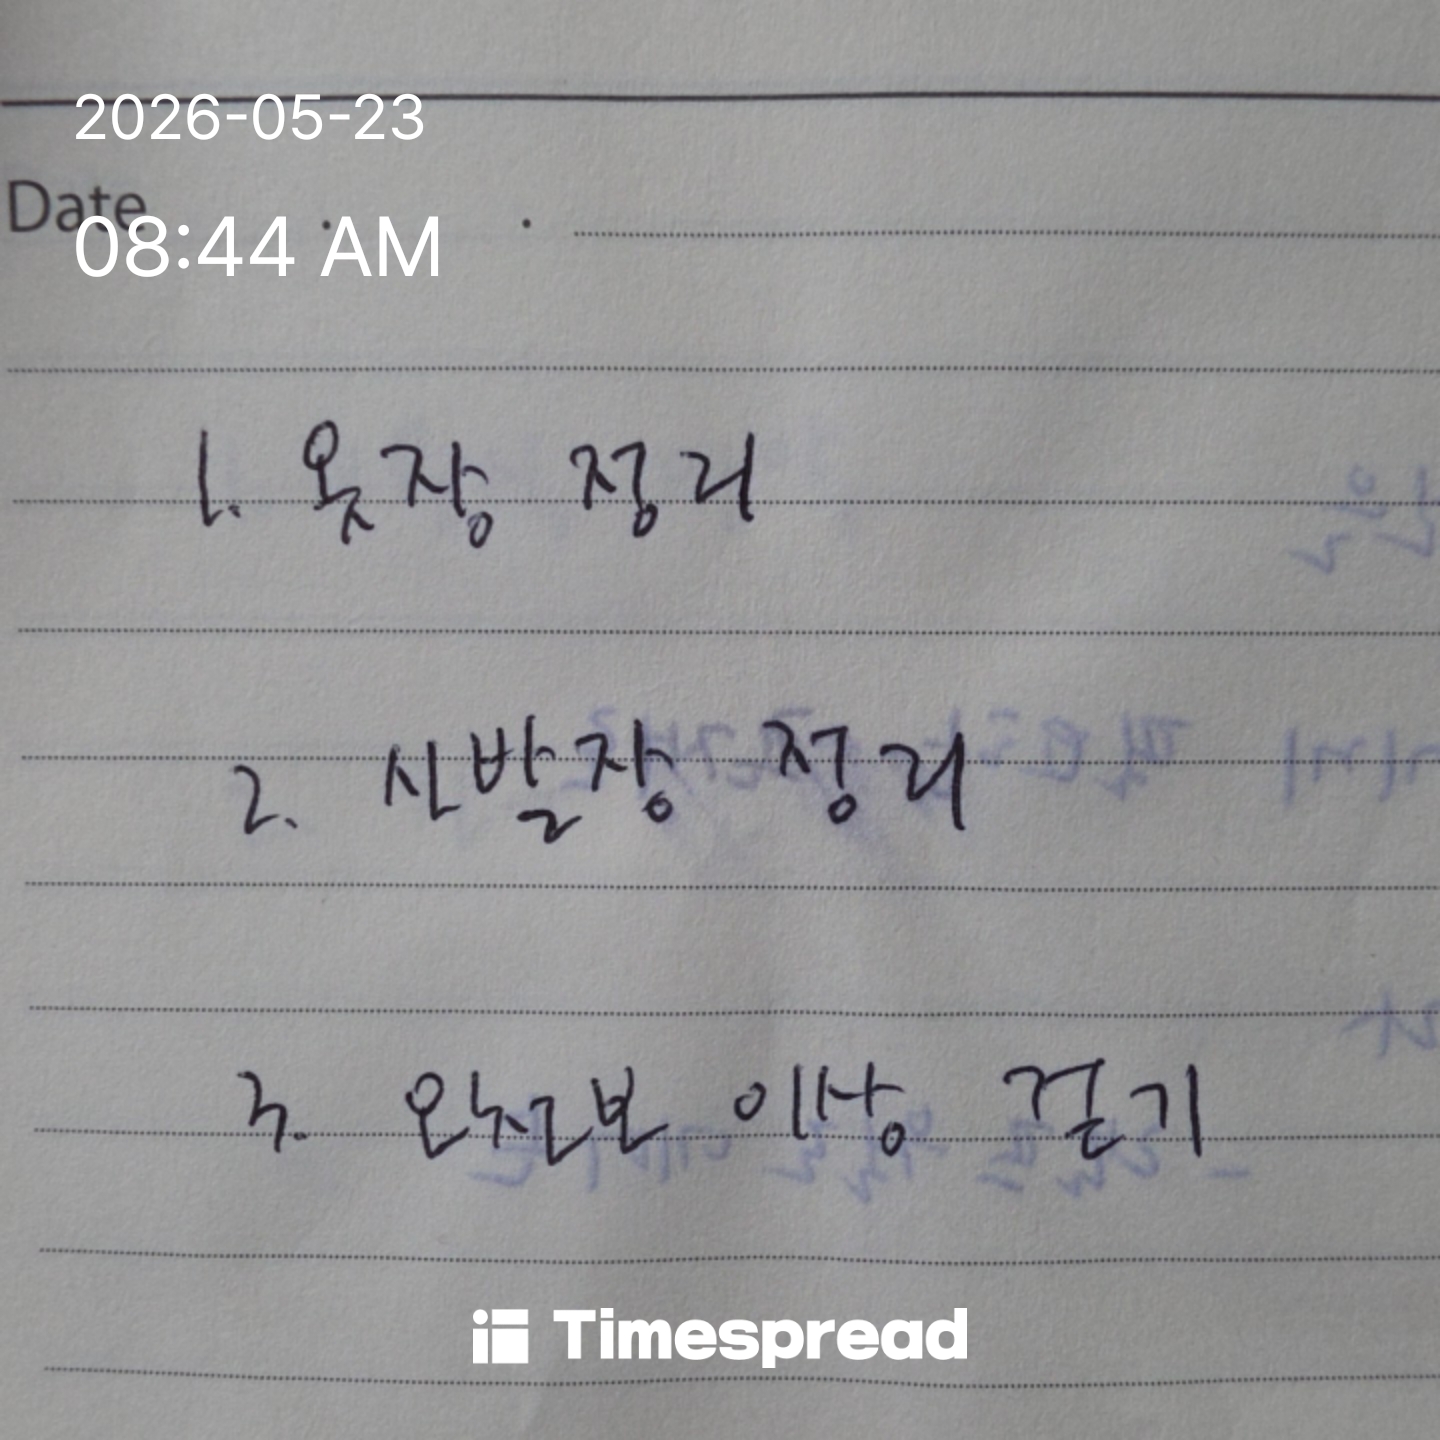 2026-05-23
Date . .
08:44 AM
1. 옷장 정리
2. 신발장 정리
3. 오천보 이상 걷기
Timespread